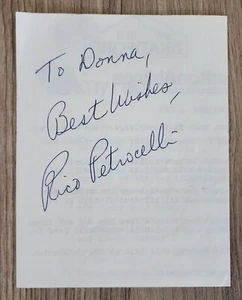 To Donna,
Best Wishes,
Rico Petrocelli